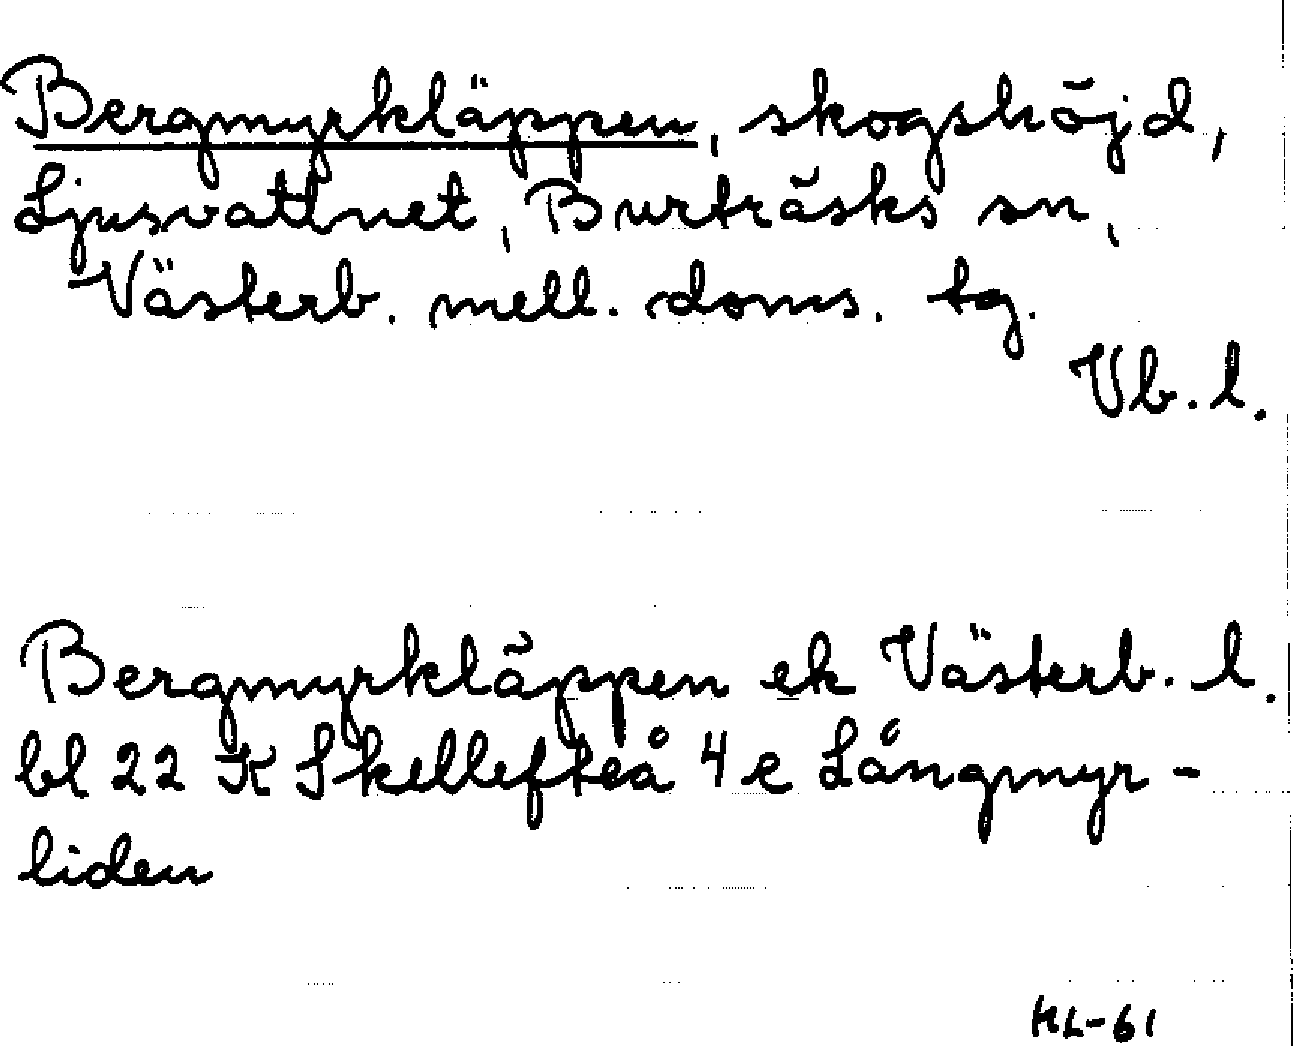 Bergmyrkläppen, skogshöjd,
Ljusvattnet, Burträsks sn,
Västerb. mell. doms. tg.
Vb. l.
Bergmyrkläppen ek Västerb. l.
bl 22 K Skellefteå 4 e Långmyr-
liden
HL-61